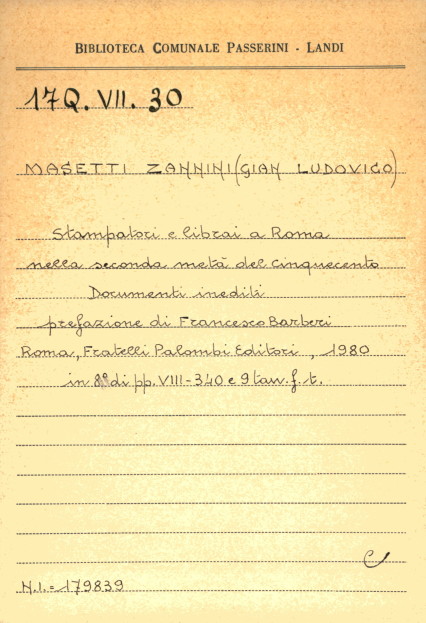 BIBLIOTECA COMUNALE PASSERINI - LANDI
17Q. VII. 30
MASETTI ZANNINI (GIAN LUDOVICO)
Stampatori e librai a Roma
nella seconda metà del Cinquecento
Documenti inediti
prefazione di Francesco Barberi
Roma, Fratelli Palombi Editori, 1980
in 8° di pp. VIII-340 e 9 tav. f. t.
C
N.I. = 179839